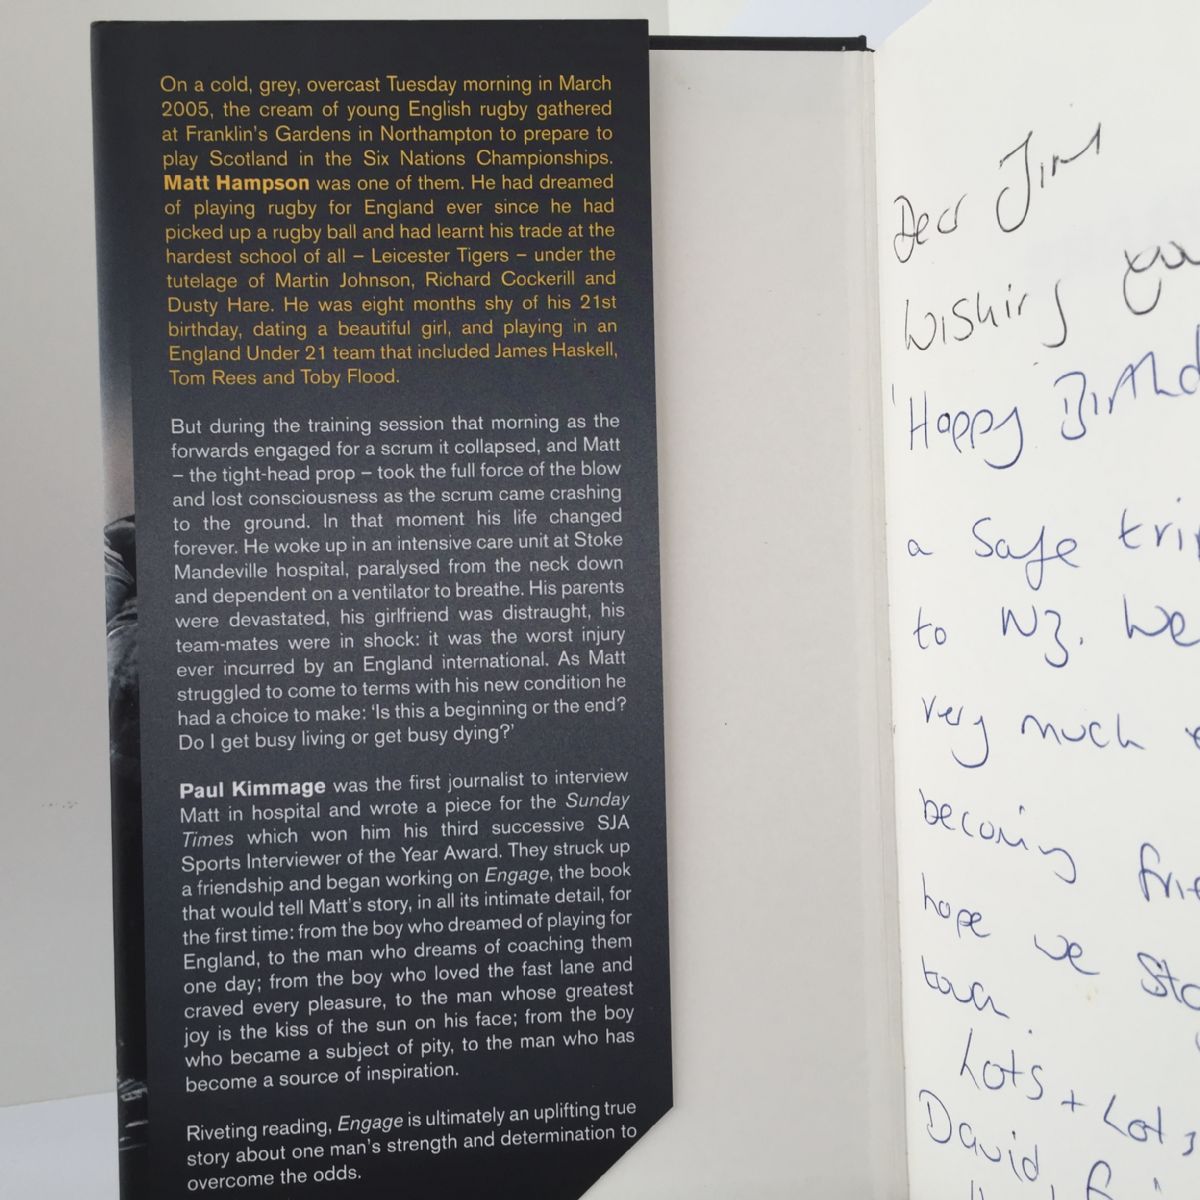 On a cold, grey, overcast Tuesday morning in March
2005, the cream of young English rugby gathered
at Franklin's Gardens in Northampton to prepare to
play Scotland in the Six Nations Championships.
Matt Hampson was one of them. He had dreamed
of playing rugby for England ever since he had
picked up a rugby ball and had learnt his trade at the
hardest school of all – Leicester Tigers – under the
tutelage of Martin Johnson, Richard Cockerill and
Dusty Hare. He was eight months shy of his 21st
birthday, dating a beautiful girl, and playing in an
England Under 21 team that included James Haskell,
Tom Rees and Toby Flood.
But during the training session that morning as the
forwards engaged for a scrum it collapsed, and Matt
– the tight-head prop – took the full force of the blow
and lost consciousness as the scrum came crashing
to the ground. In that moment his life changed
forever. He woke up in an intensive care unit at Stoke
Mandeville hospital, paralysed from the neck down
and dependent on a ventilator to breathe. His parents
were devastated, his girlfriend was distraught, his
team-mates were in shock: it was the worst injury
ever incurred by an England international. As Matt
struggled to come to terms with his new condition he
had a choice to make: 'Is this a beginning or the end?
Do I get busy living or get busy dying?'
Paul Kimmage was the first journalist to interview
Matt in hospital and wrote a piece for the Sunday
Times which won him his third successive SJA
Sports Interviewer of the Year Award. They struck up
a friendship and began working on Engage, the book
that would tell Matt's story, in all its intimate detail, for
the first time: from the boy who dreamed of playing for
England, to the man who dreams of coaching them
one day; from the boy who loved the fast lane and
craved every pleasure, to the man whose greatest
joy is the kiss of the sun on his face; from the boy
who became a subject of pity, to the man who has
become a source of inspiration.
Riveting reading, Engage is ultimately an uplifting true
story about one man's strength and determination to
overcome the odds.
Dear Jim
Wishing
Happy
a Safe
to NZ. We
very much
becoming
hope we
Lots + Lots
David